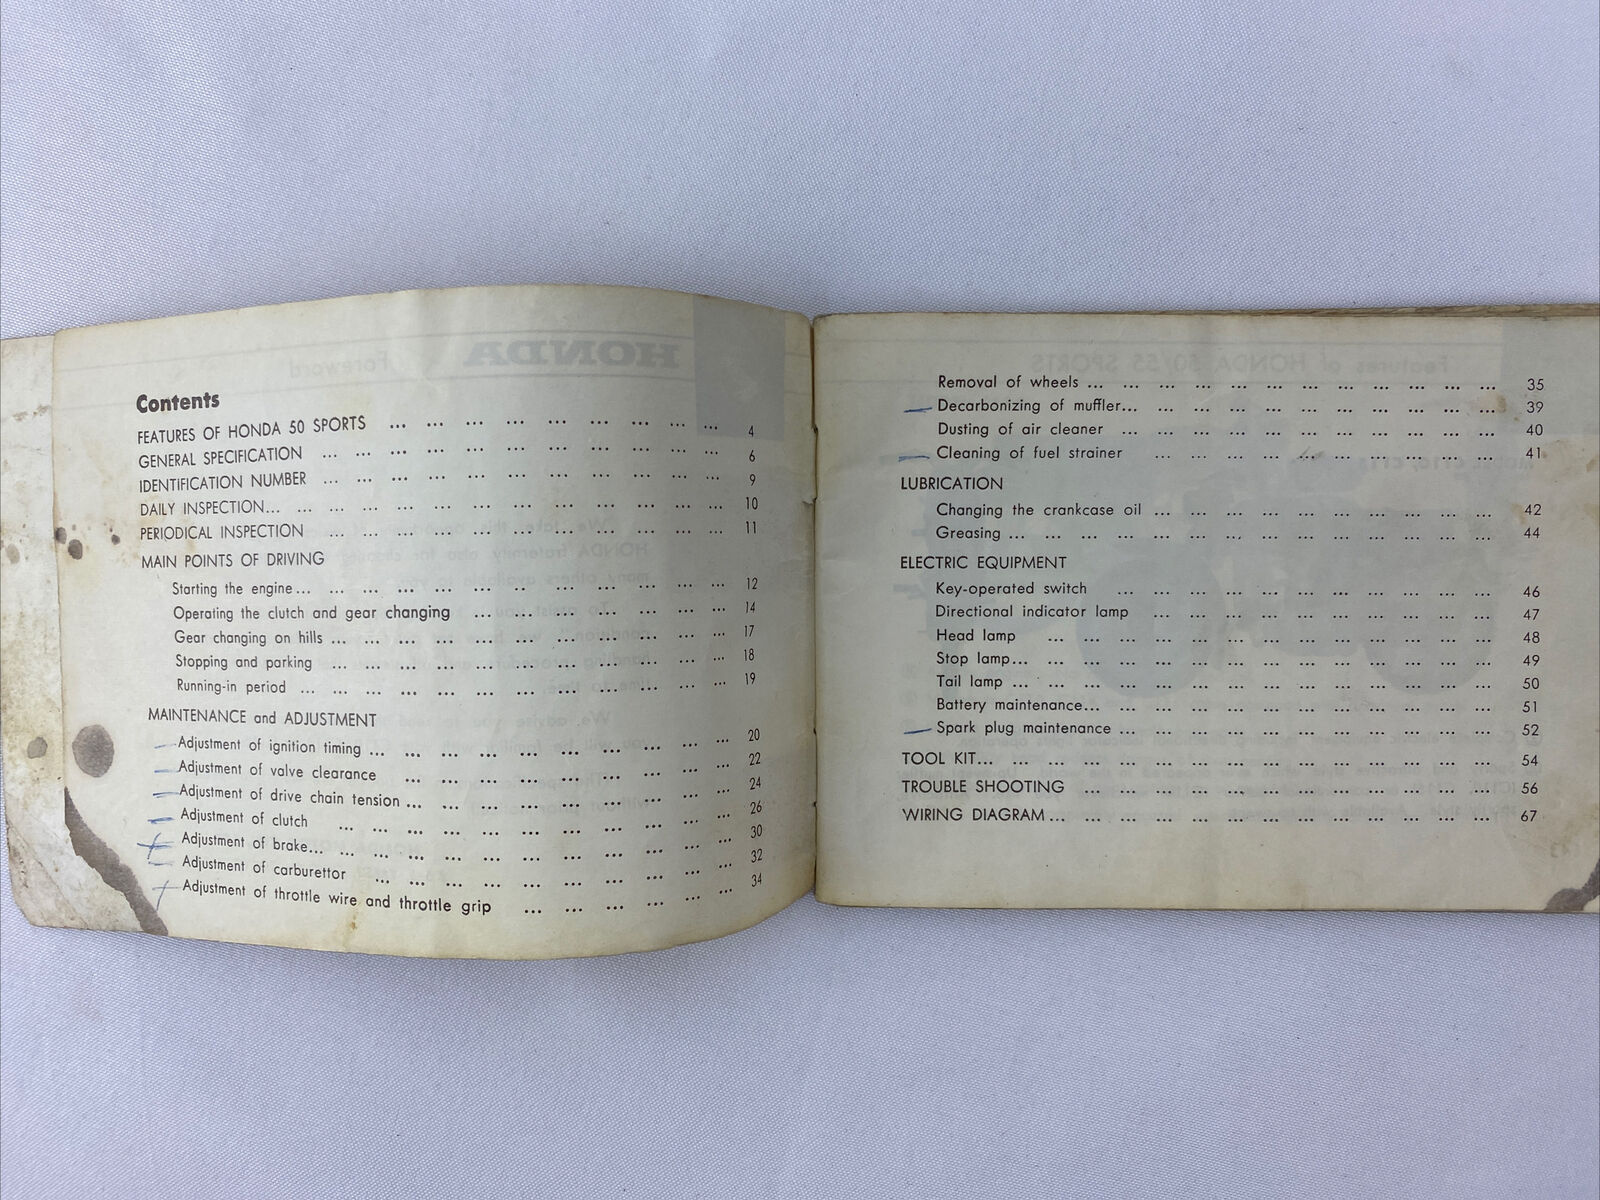 Contents
FEATURES OF HONDA 50 SPORTS ... 4
GENERAL SPECIFICATION ... 6
IDENTIFICATION NUMBER ... 9
DAILY INSPECTION... 10
PERIODICAL INSPECTION ... 11
MAIN POINTS OF DRIVING
Starting the engine... 12
Operating the clutch and gear changing ... 14
Gear changing on hills ... 17
Stopping and parking ... 18
Running-in period ... 19
MAINTENANCE and ADJUSTMENT
Adjustment of ignition timing ... 20
Adjustment of valve clearance ... 22
Adjustment of drive chain tension ... 24
Adjustment of clutch ... 26
Adjustment of brake... 30
Adjustment of carburettor ... 32
Adjustment of throttle wire and throttle grip ... 34
Removal of wheels ... 35
Decarbonizing of muffler... 39
Dusting of air cleaner ... 40
Cleaning of fuel strainer ... 41
LUBRICATION
Changing the crankcase oil ... 42
Greasing ... 44
ELECTRIC EQUIPMENT
Key-operated switch ... 46
Directional indicator lamp ... 47
Head lamp ... 48
Stop lamp... 49
Tail lamp ... 50
Battery maintenance... 51
Spark plug maintenance ... 52
TOOL KIT... 54
TROUBLE SHOOTING ... 56
WIRING DIAGRAM... 67